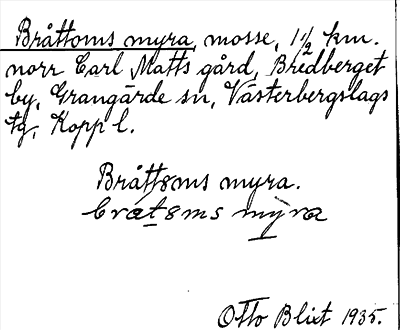 Bråttoms myra, mosse, 1 1/2 km.
norr Carl Matts gård, Bredberget
by, Grangärde sn, Västerbergslags
tg, Kopp l.
Bråttoms myra.
bratoms myra
Otto Blixt 1935.